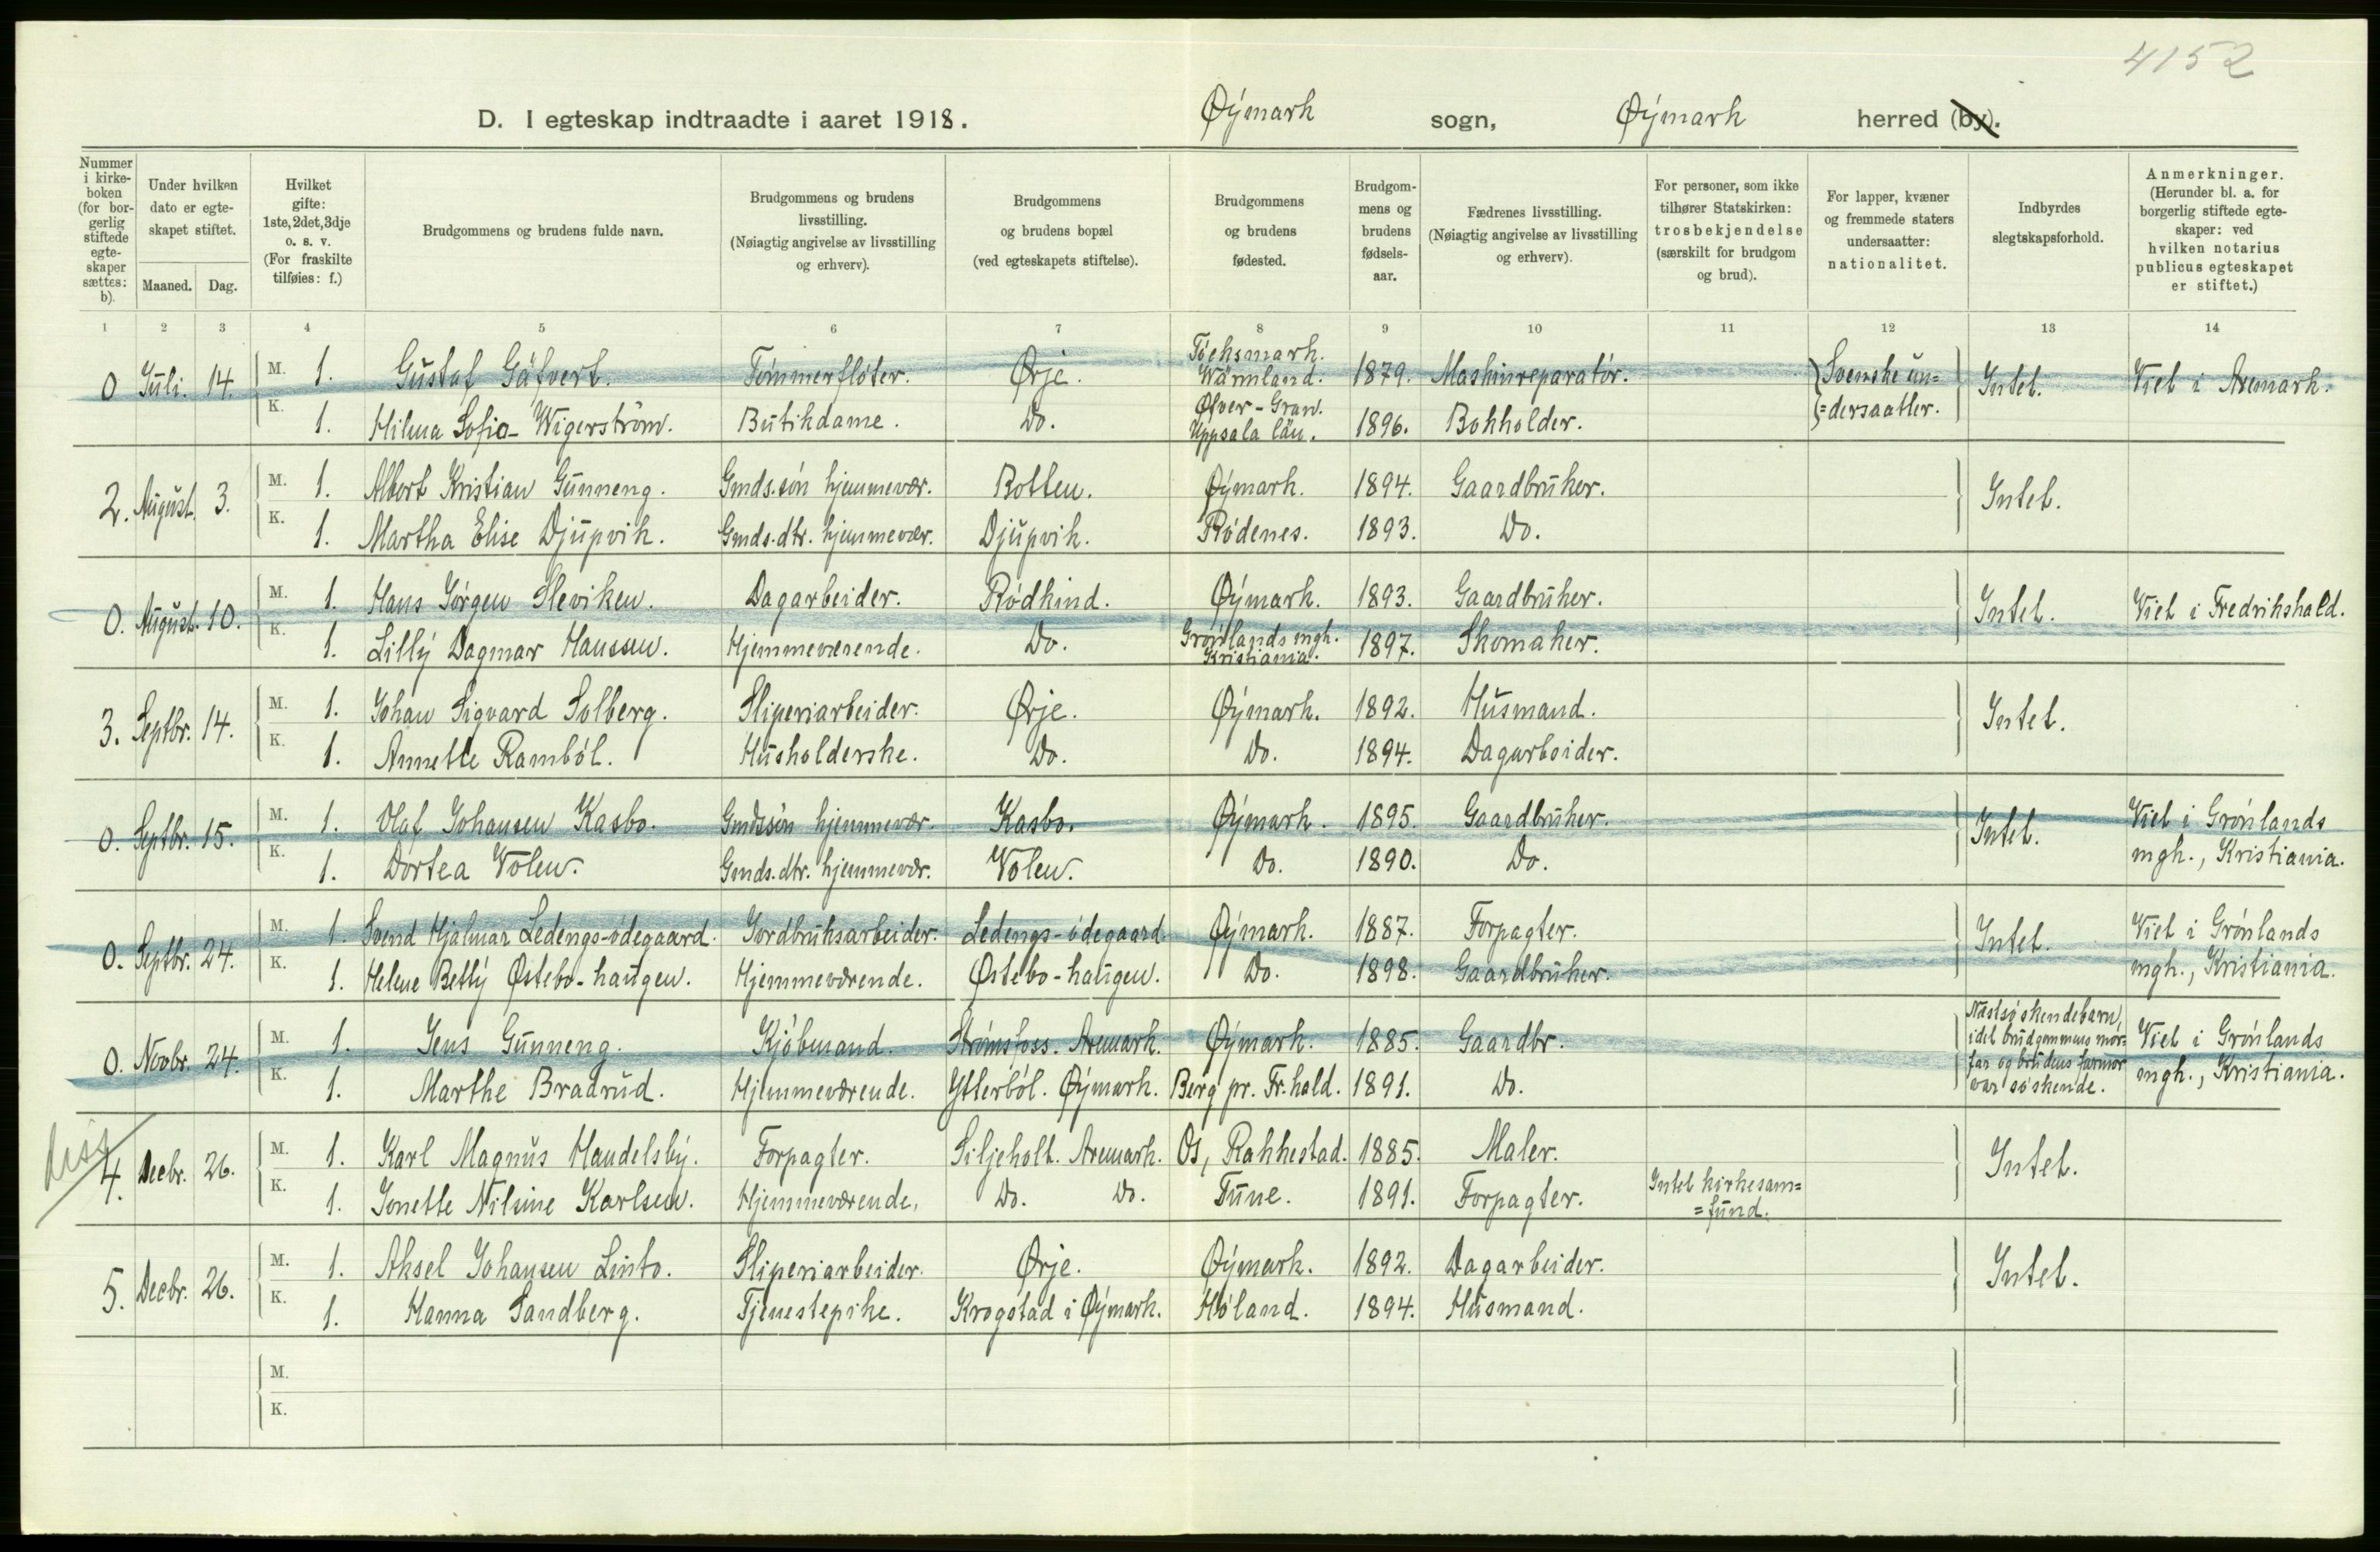 4152
D. I egteskap indtraadte i aaret 1918. Øýmark sogn, Øýmark herred (by).
Nummer i kirkeboken (for borgerlig stiftede egteskaper sættes: b).
Under hvilken dato er egteskapet stiftet.
Maaned. Dag.
Hvilket gifte: 1ste, 2det, 3dje o. s. v. (For fraskilte tilføies: f.)
Brudgommens og brudens fulde navn.
Brudgommens og brudens livsstilling. (Nøiagtig angivelse av livsstilling og erhverv).
Brudgommens og brudens bopæl (ved egteskapets stiftelse).
Brudgommens og brudens fødested.
Brudgommens og brudens fødselsaar.
Fædrenes livsstilling. (Nøiagtig angivelse av livsstilling og erhverv).
For personer, som ikke tilhører Statskirken: trosbekjendelse (særskilt for brudgom og brud).
For lapper, kvæner og fremmede staters undersaatter: nationalitet.
Indbyrdes slegtskapsforhold.
Anmerkninger. (Herunder bl. a. for borgerlig stiftede egteskaper: ved hvilken notarius publicus egteskapet er stiftet.)
1 2 3 4 5 6 7 8 9 10 11 12 13 14
0 Juli. 14. M. 1. Gustaf Gäfvert. Tømmerfløter. Ørje. Töcksmark. Wärmland. 1879. Maskinreparatør. Svenske un= Intet. Viet i Aremark.
K. 1. Hilma Sofia Wigerström. Butikdame. Do. Øfver-Gran. Uppsala län. 1896. Bokholder. =dersaatter.
2. August. 3. M. 1. Albert Kristian Gunneng. Gmds.søn hjemmevær. Botten. Øýmark. 1894. Gaardbruker. Intet.
K. 1. Martha Elise Djupvik. Gmds.dtr. hjemmevær. Djupvik. Rødenes. 1893. Do.
0. August. 10. M. 1. Hans Jørgen Sleviken. Dagarbeider. Rødkind. Øýmark. 1893. Gaardbruker. Intet. Viet i Fredrikshald.
K. 1. Lillý Dagmar Hansen. Hjemmeværende. Do. Grønlands mgh. Kristiania. 1897. Skomaker.
3. Septbr. 14. M. 1. Johan Sigvard Solberg. Sliperiarbeider. Ørje. Øýmark. 1892. Husmand. Intet.
K. 1. Annette Rambøl. Husholderske. Do. Do. 1894. Dagarbeider.
0. Septbr. 15. M. 1. Olaf Johansen Kasbo. Gmdssøn hjemmevær. Kasbo. Øýmark. 1895. Gaardbruker. Intet. Viet i Grønlands
K. 1. Dortea Volen. Gmds.dtr. hjemmevær. Volen. Do. 1890. Do. mgh., Kristiania.
0. Septbr. 24. M. 1. Svend Hjalmar Ledengs-ødegaard. Jordbruksarbeider. Ledengs-ødegaard. Øýmark. 1887. Forpagter. Intet. Viet i Grønlands
K. 1. Helene Bettý Østebo-haugen. Hjemmeværende. Østebo-haugen. Do. 1898. Gaardbruker. mgh., Kristiania.
0. Novbr. 24. M. 1. Jens Gunneng. Kjøbmand. Strømsfoss. Aremark. Øýmark. 1885. Gaardbr. Næstsøskendebarn, idet brudgommens mor= Viet i Grønlands
K. 1. Marthe Bradrud. Hjemmeværende. Ytterbøl. Øýmark. Berg pr. Fr.hald. 1891. Do. far og brudens farmor var søskende. mgh., Kristiania.
4. Decbr. 26. M. 1. Karl Magnus Handelsbý. Forpagter. Siljeholt. Aremark. Os, Rakkestad. 1885. Maler. Intet.
K. 1. Jonette Nilsine Karlsen. Hjemmeværende. Do. Do. Tune. 1891. Forpagter. Intet kirkesam=
=fund.
5. Decbr. 26. M. 1. Aksel Johansen Linto. Sliperiarbeider. Ørje. Øýmark. 1892. Dagarbeider. Intet.
K. 1. Hanna Sandberg. Tjenestepike. Krogstad i Øýmark. Høland. 1894. Husmand.
M.
K.